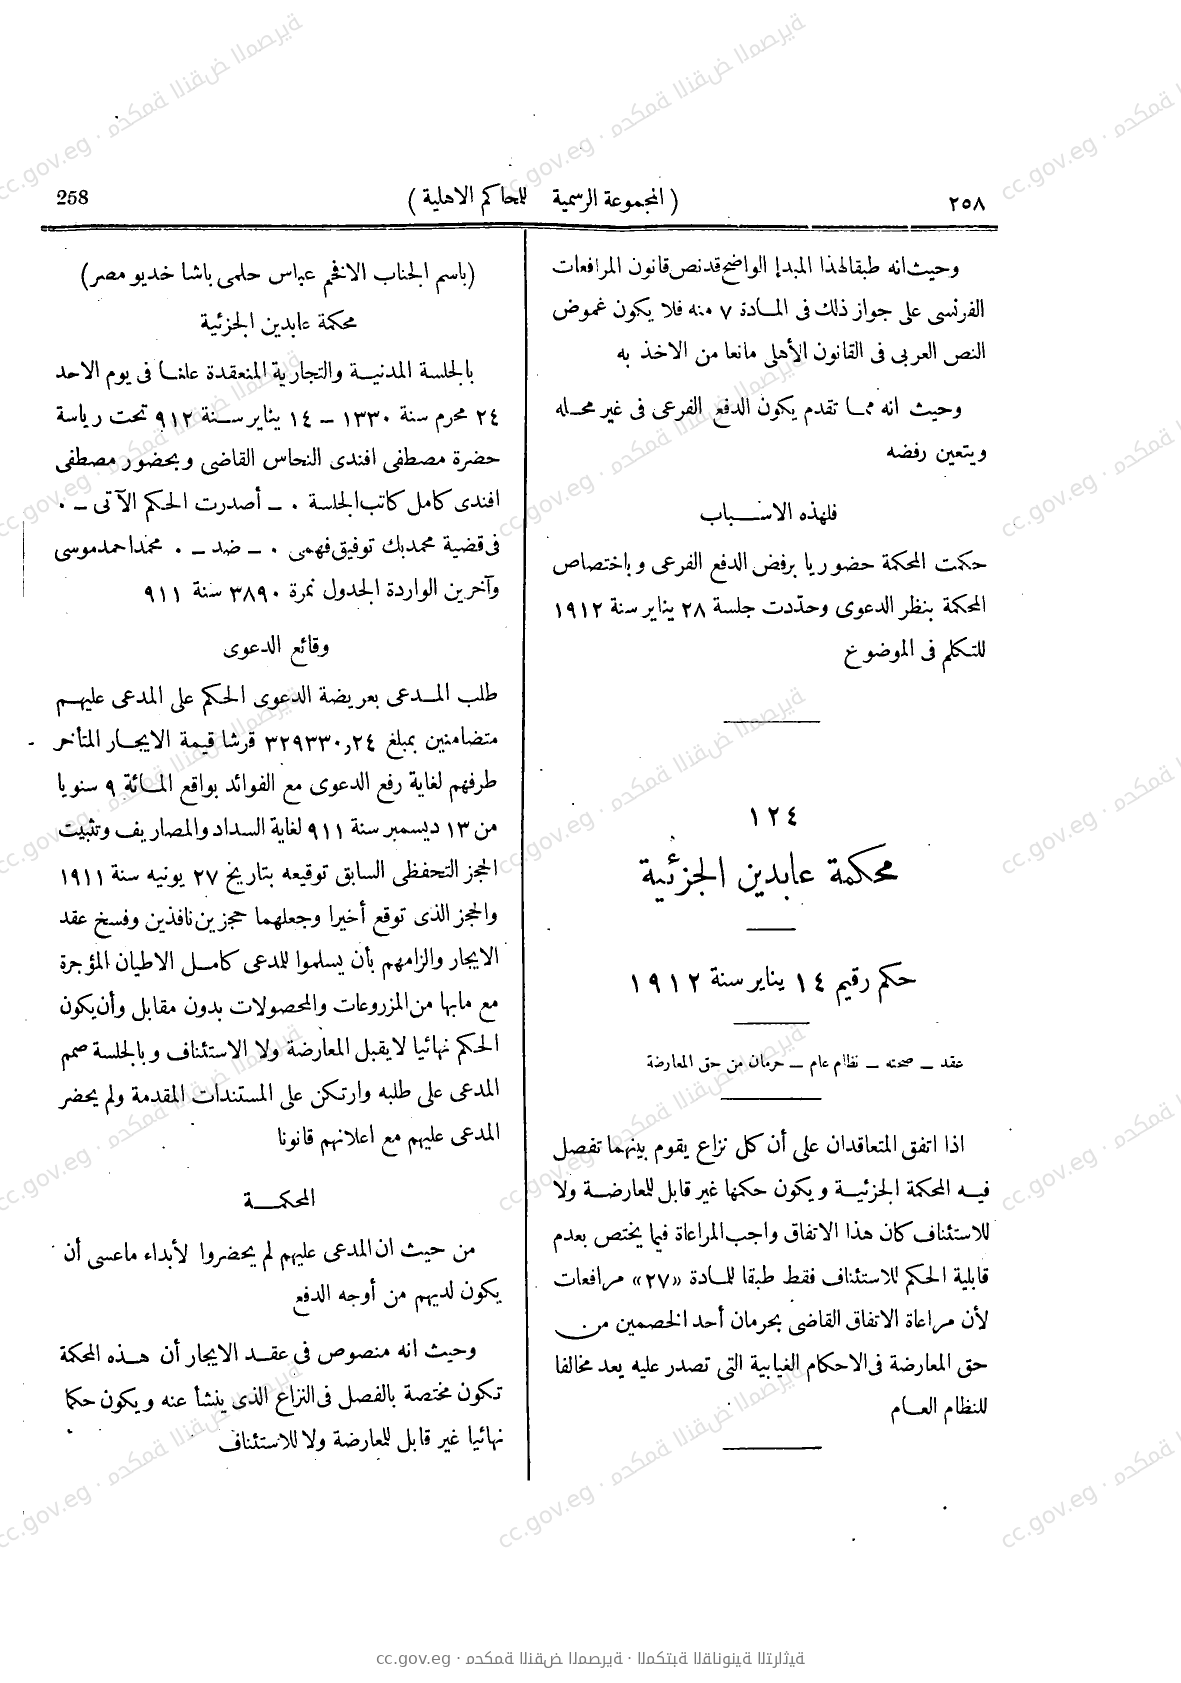 ٢٥٨
( المجموعة الرسمية للمحاكم الاهلية )
258
وحيث انه طبقا لهذا المبدإ الواضح قد نص قانون المرافعات
الفرنسى على جواز ذلك فى المـادة ٧ منه فلا يكون غموض
النص العربى فى القانون الأهلى مانعا من الاخذ به
وحيث انه ممـا تقدم يكون الدفع الفرعى فى غير محـله
ويتعين رفضه
فلهذه الاسـباب
حكمت المحكمة حضوريا برفض الدفع الفرعى وباختصاص
المحكمة بنظر الدعوى وحدّدت جلسة ٢٨ يناير سنة ١٩١٢
للتكلم فى الموضوع
١٢٤
محكمة عابدين الجزئية
حكم رقيم ١٤ يناير سنة ١٩١٢
عقد ــ صحته ــ نظام عام ــ حرمان من حق المعارضة
اذا اتفق المتعاقدان على أن كل نزاع يقوم بينهما تفصل
فيـه المحكمة الجزئيـة ويكون حكمها غير قابل للمعارضـة ولا
للاستئناف كان هذا الاتفاق واجب المراعاة فيما يختص بعدم
قابلية الحكم للاستئناف فقط طبقا للمادة «٢٧» مرافعات
لأن مراعاة الاتفاق القاضى بحرمان أحد الخصمين من
حق المعارضة فى الاحكام الغيابية التى تصدر عليه يعد مخالفا
للنظام العـام
(باسم الجناب الافخم عباس حلمى باشا خديو مصر)
محكمة عابدين الجزئية
بالجلسة المدنيـة والتجارية المنعقدة علنـا فى يوم الاحد
٢٤ محرم سنة ١٣٣٠ ــ ١٤ يناير سـنة ٩١٢ تحت رياسة
حضرة مصطفى افندى النحاس القاضى وبحضور مصطفى
افندى كامل كاتب الجلسة ٠ ــ أصدرت الحكم الآتى ــ ٠
فى قضية محمد بك توفيق فهمى ٠ ــ ضد ــ ٠ محمد احمد موسى
وآخرين الواردة الجدول نمرة ٣٨٩٠ سنة ٩١١
وقائع الدعوى
طلب المـدعى بعريضة الدعوى الحكم على المدعى عليهـم
متضامنين بمبلغ ٣٢٩٣٣٠,٢٤ قرشا قيمة الايجـار المتأخر
طرفهم لغاية رفع الدعوى مع الفوائد بواقع المـائة ٩ سنويا
من ١٣ ديسمبر سنة ٩١١ لغاية السداد والمصاريف وتثبيت
الحجز التحفظى السابق توقيعه بتاريخ ٢٧ يونيه سنة ١٩١١
والحجز الذى توقع أخيرا وجعلهما حجزين نافذين وفسخ عقد
الايجار والزامهم بأن يسلموا للمدعى كامـل الاطيان المؤجرة
مع مابها من المزروعات والمحصولات بدون مقابل وأن يكون
الحكم نهائيا لا يقبل المعارضة ولا الاستئناف وبالجلسة صمم
المدعى على طلبه وارتكن على المستندات المقدمة ولم يحضر
المدعى عليهم مع اعلانهم قانونا
المحكـمـة
من حيث ان المدعى عليهم لم يحضروا لأبداء ماعسى أن
يكون لديهم من أوجه الدفع
وحيث انه منصوص فى عقـد الايجار أن هـذه المحكمة
تكون مختصة بالفصل فى النزاع الذى ينشأ عنه ويكون حكما
نهائيا غير قابل للمعارضة ولا للاستئناف
cc.gov.eg · محكمة النقض المصرية · المكتبة القانونية التراثية